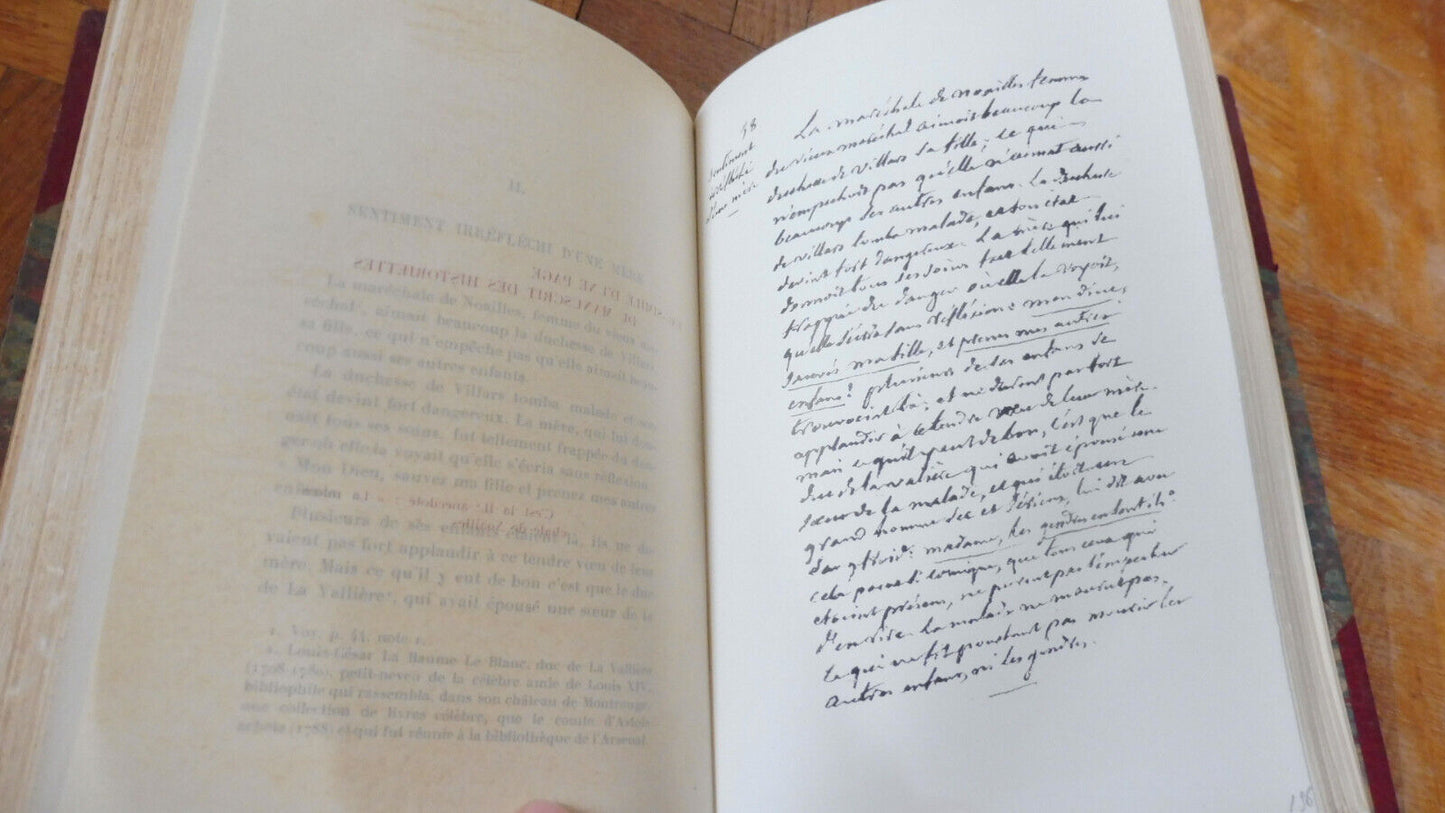 II.
SENTIMENT IRRÉFLÉCHI D'UNE MÈRE
FAC-SIMILE D'UNE PAGE
DU MANUSCRIT DES HISTORIETTES
La maréchale de Noailles, femme du vieux
maréchal, aimait beaucoup la duchesse de Villars
sa fille, ce qui n'empêche pas qu'elle aimait beau-
coup aussi ses autres enfants.
La duchesse de Villars tomba malade et son
état devint fort dangereux. La mère, qui lui don-
nait tous ses soins, fut tellement frappée du dan-
ger où elle la voyait qu'elle s'écria sans réflexion
« Mon Dieu, sauvez ma fille et prenez mes autres
enfants
C'est la II.e anecdote : « La maré-
chale de Noailles
Plusieurs de ses enfants étaient là, ils ne de-
vaient pas fort applaudir à ce tendre vœu de leur
mère. Mais ce qu'il y eut de bon c'est que le duc
de La Vallière, qui avait épousé une sœur de la
1. Voy. p. 44, note 1.
2. Louis-César La Baume Le Blanc, duc de La Vallière
(1708-1780), petit-neveu de la célèbre amie de Louis XIV,
bibliophile qui rassembla, dans son château de Montrouge,
une collection de livres célèbre, que le comte d'Artois
acheta (1788) et qui fut réunie à la bibliothèque de l'Arsenal.
48
Sentiment
irréfléchi
d'une mère
La maréchale de noailles femme
du vieux maréchal aimoit beaucoup la
duchesse de villars sa fille; ce qui
n'empechoit pas qu'elle n'aimat aussi
beaucoup ses autres enfans. La duchesse
de villars tomba malade, et son état
devint fort dangereux. La mère qui lui
donnoit tous ses soins fut tellement
frappée du danger où elle la voyoit,
qu'elle s'écria sans réflexion: mon dieu,
sauvés ma fille, et prenes mes autres
enfans! plusieurs de ses enfans se
trouvoient là; et ne durent pas fort
applaudir à ce tendre vœu de leur mère.
mais ce qu'il y eut de bon, c'est que le
duc de la valière qui avoit épousé une
sœur de la malade, et qui étoit un
grand homme sec et sérieux, lui dit avec
sang froid: madame, les gendres en sont ils?
cela parut si comique, que tous ceux qui
étoient présens, ne purent pas s'empecher
d'en rire. La malade ne mourut pas.
Ce qui ne fit pourtant pas mourir les
autres enfans, ni les gendres.
136